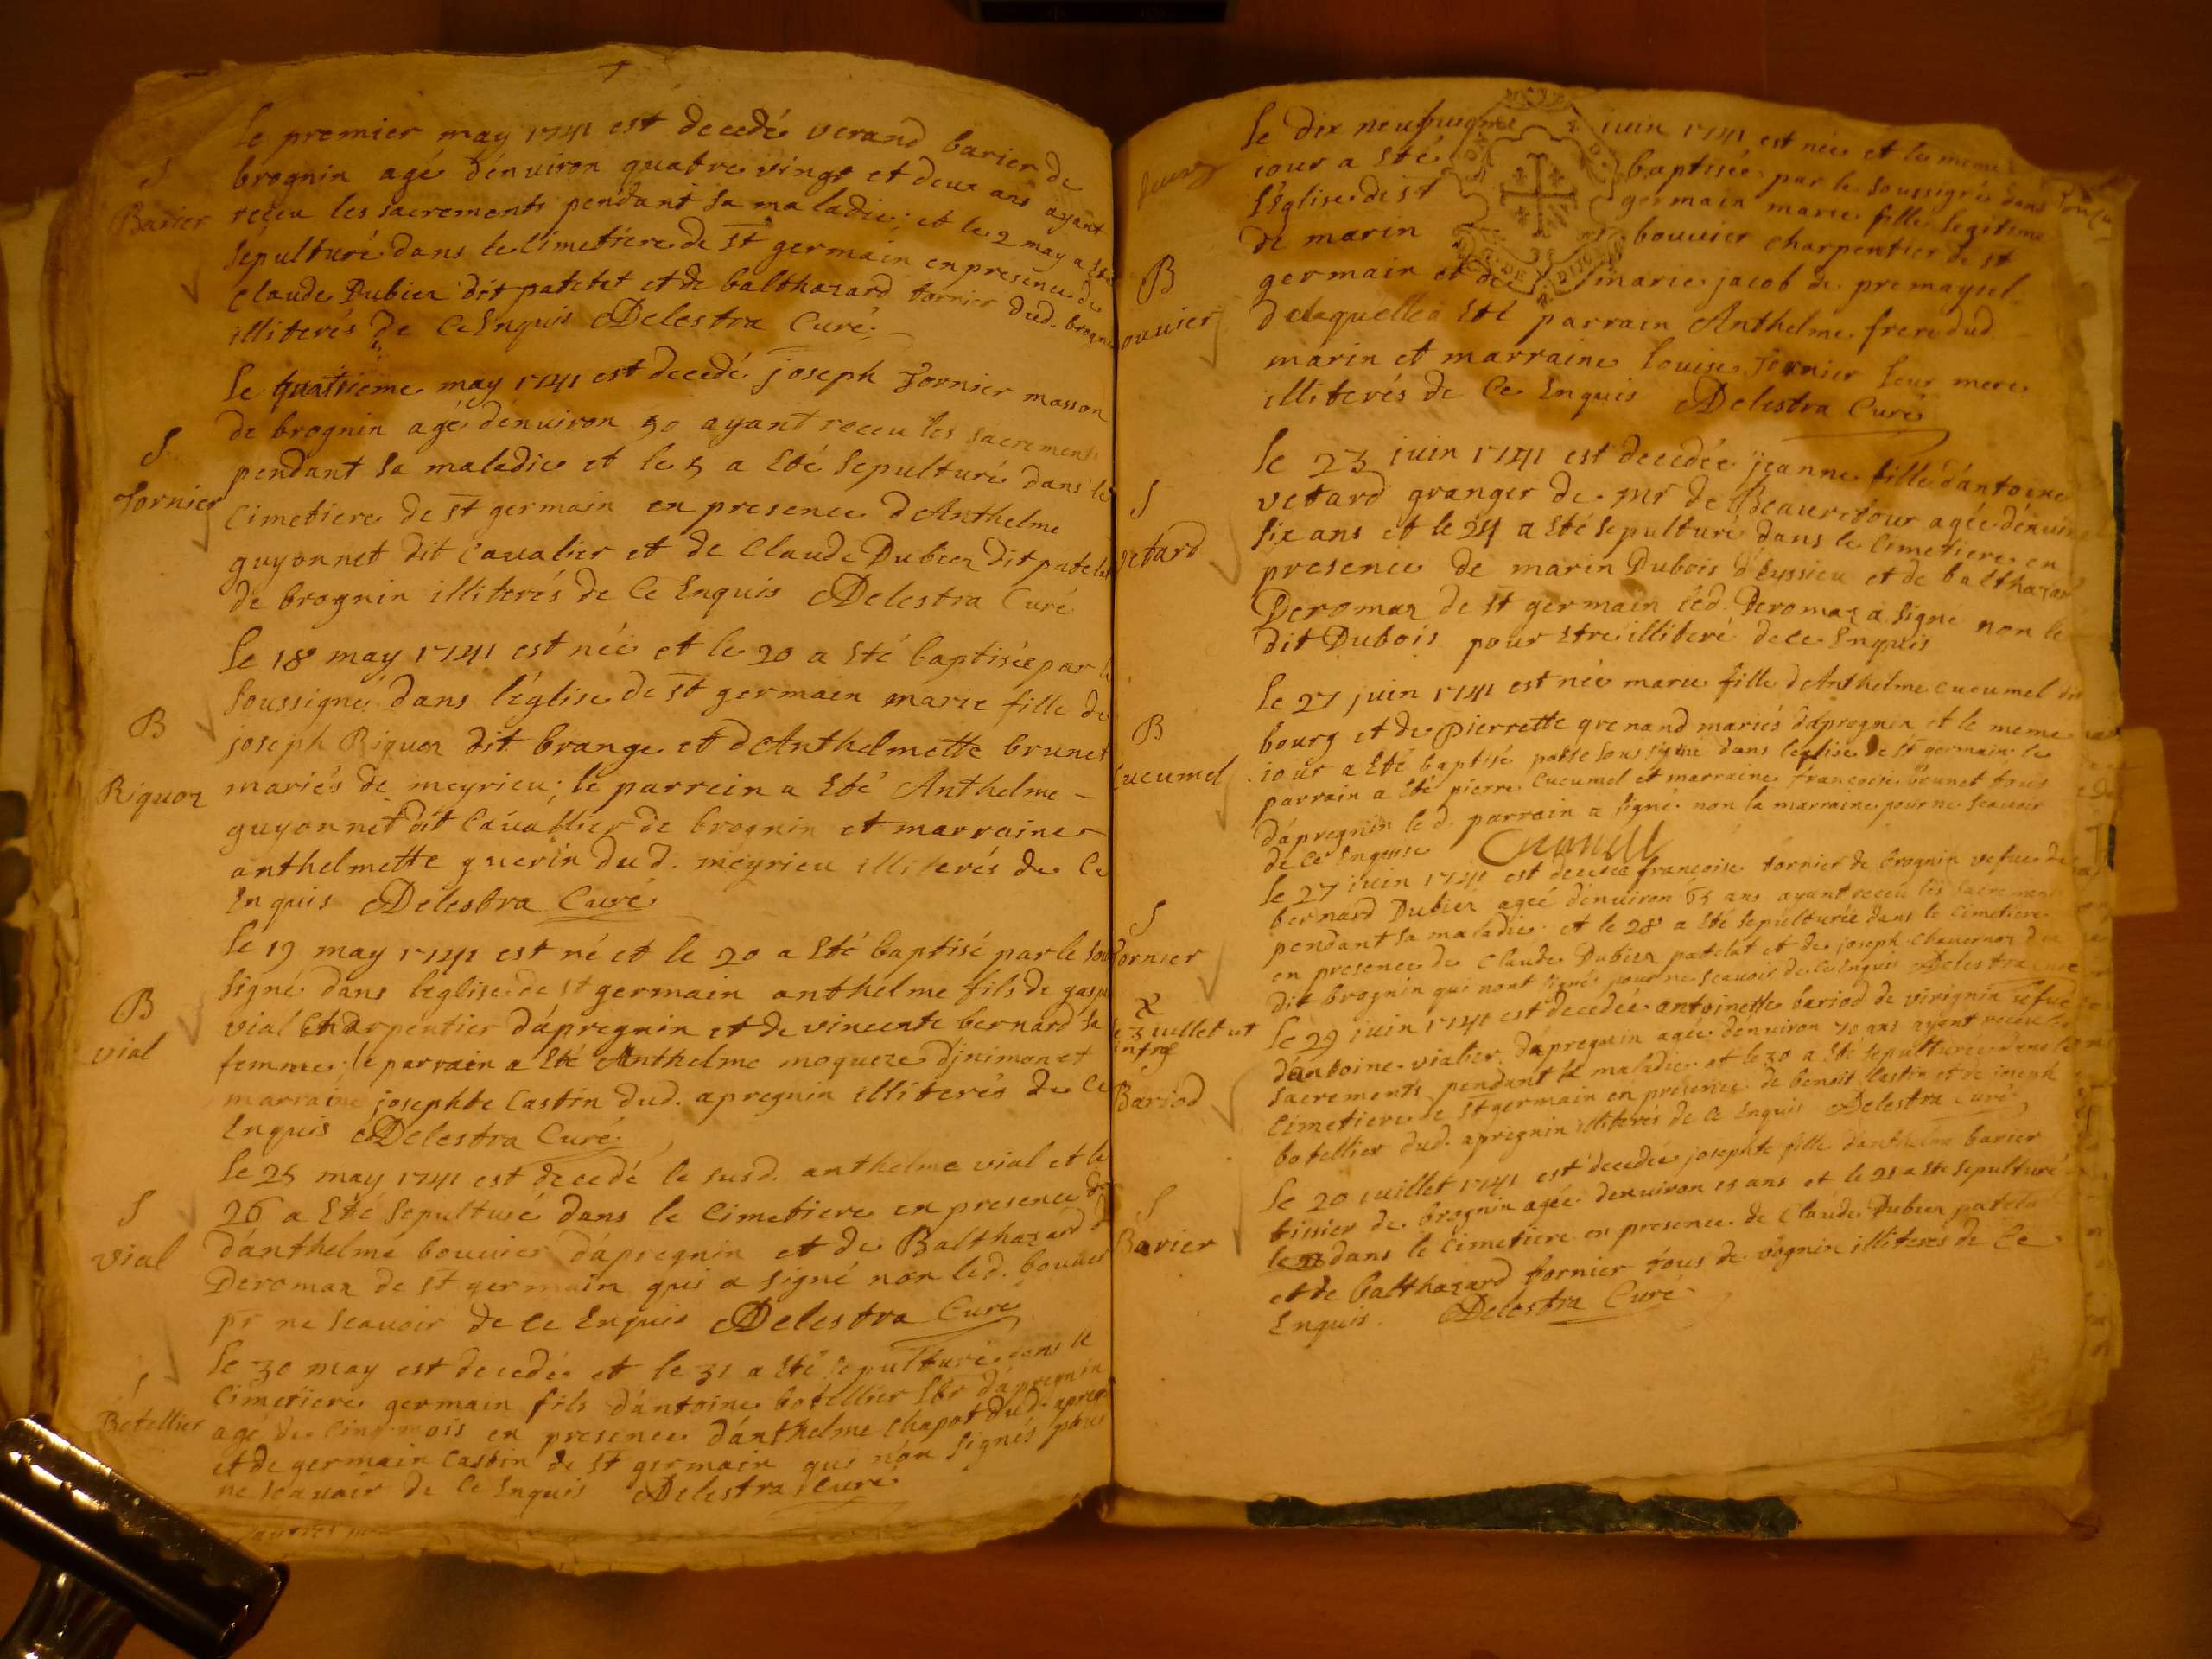 le premier may 1741 est decedé verand barier de
brognin agé dénuiron quatre vingt et deux ans ayant
S
Barier
receu les sacrements pendant sa maladie; et le 2 may a Eté
sépulturé dans le Cimetiere de st germain en presence de
Claude Dubiez dit patelat et de balthazard tornier dud. brognin
illiterés de Ce Enquis Delestra Curé
le quatrieme may 1741 est decedé joseph Tornier masson
de brognin agé dénuiron 50 ayant receu les sacrements
S
Tornier
pendant sa maladie et le 5 a Eté sepulturé dans le
Cimetiere de st germain en presence dAnthelme
guyonnet dit Caualier et de Claude Dubiez dit patelat
de brognin illiterés de Ce Enquis Delestra Curé
le 18 may 1741 est née et le 20 a Eté baptisée par le
soussigné dans léglise de st germain marie fille de
B
Riquoz
joseph Riquoz dit brange et dAnthelmette brunet
mariés de meyrieu; le parrein a Eté Anthelme
guyonnet dit Caualier de brognin et marraine
anthelmette guerin dud. meyrieu illiterés de Ce
Enquis Delestra Curé
le 19 may 1741 est né et le 20 a Eté baptisé par le sous
signé dans leglise de st germain anthelme fils de
B
vial
vial Charpentier dápregnin et de vincente bernard sa
femme; le parrain a Eté Anthelme moqueze et
marraine josephte Castin dud. apregnin illiterés de Ce
Enquis Delestra Curé
le 25 may 1741 est decedé le susd. anthelme vial et le
26 a Eté sepulturé dans le Cimetiere en presence
S
vial
dánthelme bouuier dápregnin et de Balthazard
Deromaz de st germain qui a signé non led. bouuier
pr ne scauoir de ce Enquis Delestra Curé
le 30 may est decedé et le 31 a Eté sepulturé dans le
S
Botellier
Cimetiere germain fils dántoine botellier dápregnin
agé de Cinq mois en presence dánthelme Chapot dud. apregnin
et de germain Castin de st germain qui non signés pour
ne scauoir de Ce Enquis Delestra Curé
le dix neufuieme juin 1741 est née et le meme
iour a Eté baptisée par le soussigné dans
l'Eglise de st germain marie fille legitime
B
ouuier
de marin bouuier charpentier de st
germain et de marie jacob de premeysel
de laquelle a Eté parrain Anthelme frere dud
marin et marraine louise Tornier leur mere
illiterés de Ce Enquis Delestra Curé
le 23 iuin 1741 est decedée jeanne fille dántoine
S
vetard
vetard granger de mr de Beauretour agée dénuiron
six ans et le 24 a Eté sepulturé dans le Cimetiere en
presence de marin Dubois d'Eyssieu et de balthazar
Deromaz de st germain led. Deromaz a signé non le
dit Dubois pour Etre illiteré de ce Enquis
B
Cucumel
le 27 juin 1741 est née marie fille dAnthelme cucumel
bourg et de pierrette grenand mariés dápregnin et le meme
iour a Eté baptisé par le soussigné dans léglise de st germain le
parrain a Eté pierre Cucumel et marraine francoise brunet tous
dápregnin le d. parrain a signé non la marraine pour ne scauoir
de Ce Enquise Cucumel
le 27 iuin 1741 est decedée francoise tornier de brognin vefue de
S
Tornier
bernard Dubiez agée dénuiron 65 ans ayant receu les sacrements
pendant sa maladie et le 28 a Eté sepulturée dans le Cimetiere
en presence de Claude Dubiez patelat et de joseph Chauernoz
dit brognin qui nont signés pour ne scauoir de Ce Enquis Delestra Curé
juillet ut
S
Bariod
le 29 iuin 1741 est decedée antoinette bariod de virignin vefue
dántoine vialier dápregnin agée dénuiron 70 ans ayant receu les
sacrements pendant sa maladie et le 30 a Eté sepulturée dans le
Cimetiere de st germain en presence de benoit Castin et de joseph
botellier dud. apregnin illiterés de Ce Enquis Delestra Curé
S
Barier
le 20 iuillet 1741 est decedée josephte fille danthelme barier
tissier de brognin agée denuiron 15 ans et le 21 a Ete sepulturé
dans le Cimetiere en presence de Claude Dubiez patela
et de balthazard Tornier tous de vognin illiterés de Ce
Enquis. Delestra Curé